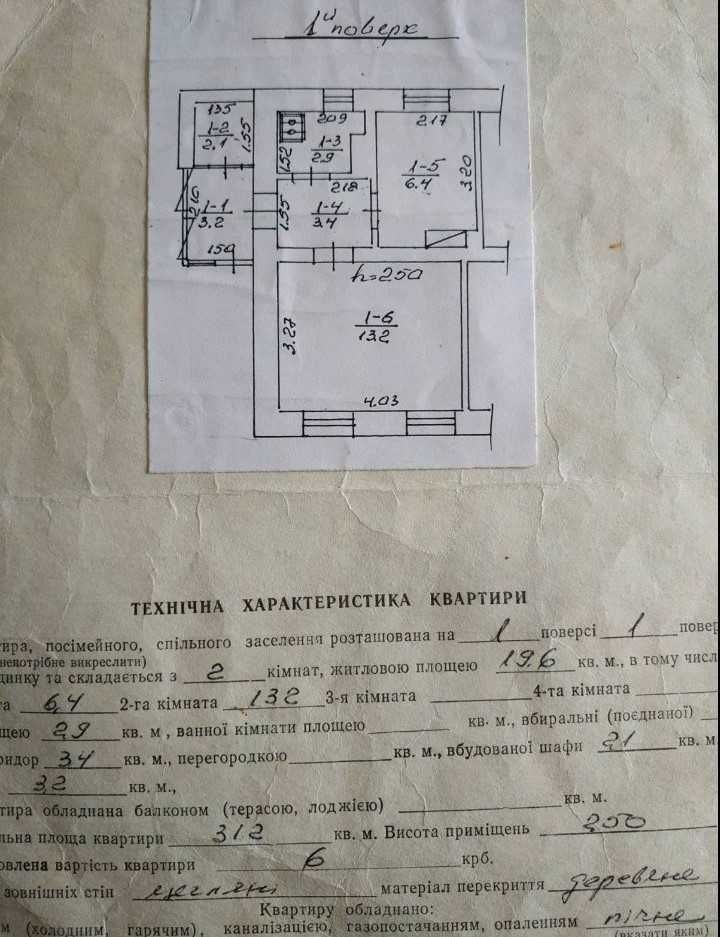 1й поверх
135
1-2
2.1
1.55
209
1-3
2.9
1.52
217
1-5
6.4
3.20
216
1-1
3.2
150
218
1-4
3.4
1.55
h=250
1-6
13.2
3.27
4.03
ТЕХНІЧНА ХАРАКТЕРИСТИКА КВАРТИРИ
тира, посімейного, спільного заселення розташована на 1 поверсі 1 повер
ненотрібне викреслити)
динку та складається з 2 кімнат, житловою площею 19.6 кв. м., в тому числ
та 6,4 2-га кімната 13.2 3-я кімната 4-та кімната
щею 2,9 кв. м, ванної кімнати площею кв. м., вбиральні (поєднаної)
ридор 3.4 кв. м., перегородкою кв. м., вбудованої шафи 2,1 кв. м
3,2 кв. м.,
тира обладнана балконом (терасою, лоджією) кв. м.
льна площа квартири 31.2 кв. м. Висота приміщень 2,50
овлена вартість квартири 6 крб.
зовнішніх стін цегляні матеріал перекриття деревяне
Квартиру обладнано:
м (холодним, гарячим), каналізацією, газопостачанням, опаленням пічне
(вказати яким)